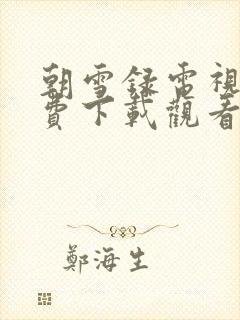 朝雪錄電視
費下載觀看
鄭海生